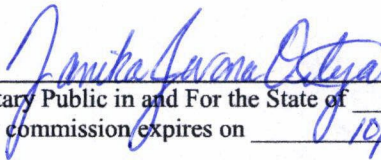 Janika Jovona
tary Public in and For the State of
commission expires on 10/